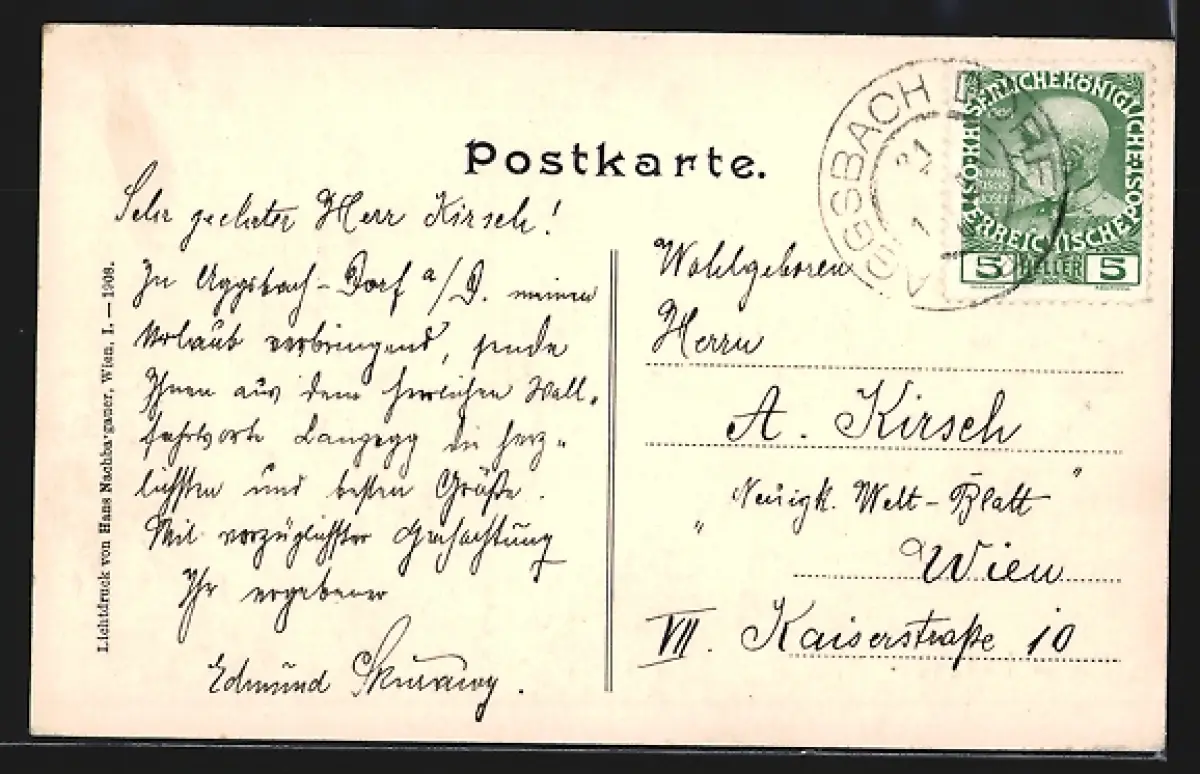 Postkarte.
Sehr geehrter Herr Kirsch!
In Aggsbach-Dorf a/D. meinen
Urlaub verbringend, sende
Ihnen aus dem herrlichen Wall-
fahrtsorte Langegg die herz-
lichsten und besten Grüße.
Mit vorzüglichster Hochachtung
Ihr ergebener
Edmund
Lichtdruck von Hans Nachbargauer, Wien, I. — 1908.
AGGSBACH DORF
21
KAISERLICHE KÖNIGLICHE ÖSTERREICHISCHE POST
5 HELLER 5
Wohlgeboren
Herrn
A. Kirsch
„Neuigk. Welt-Blatt"
Wien
VII. Kaiserstraße 10